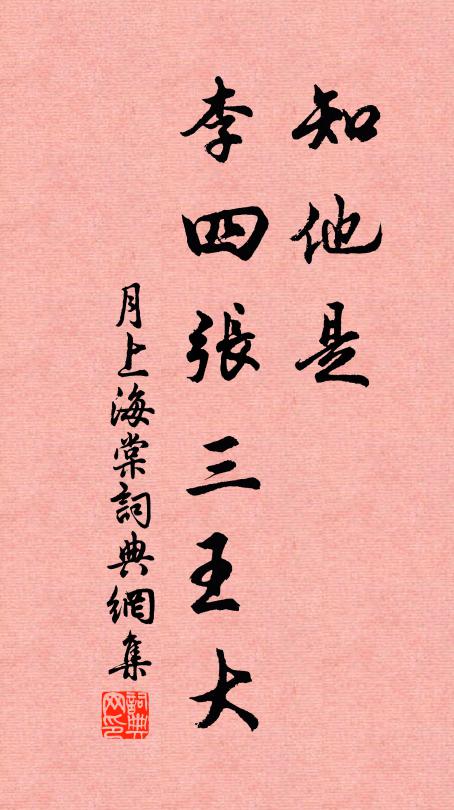 知他是
李四張三王大
月上海棠詞典網集
詞典网印